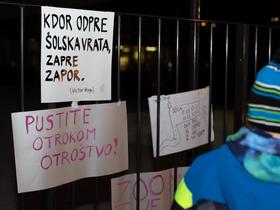 KDOR ODPRE
ŠOLSKA VRATA,
ZAPRE
ZAPOR.
(Victor Hugo)
PUSTITE
OTROKOM
OTROŠTVO!
ŠOLA
ZOO